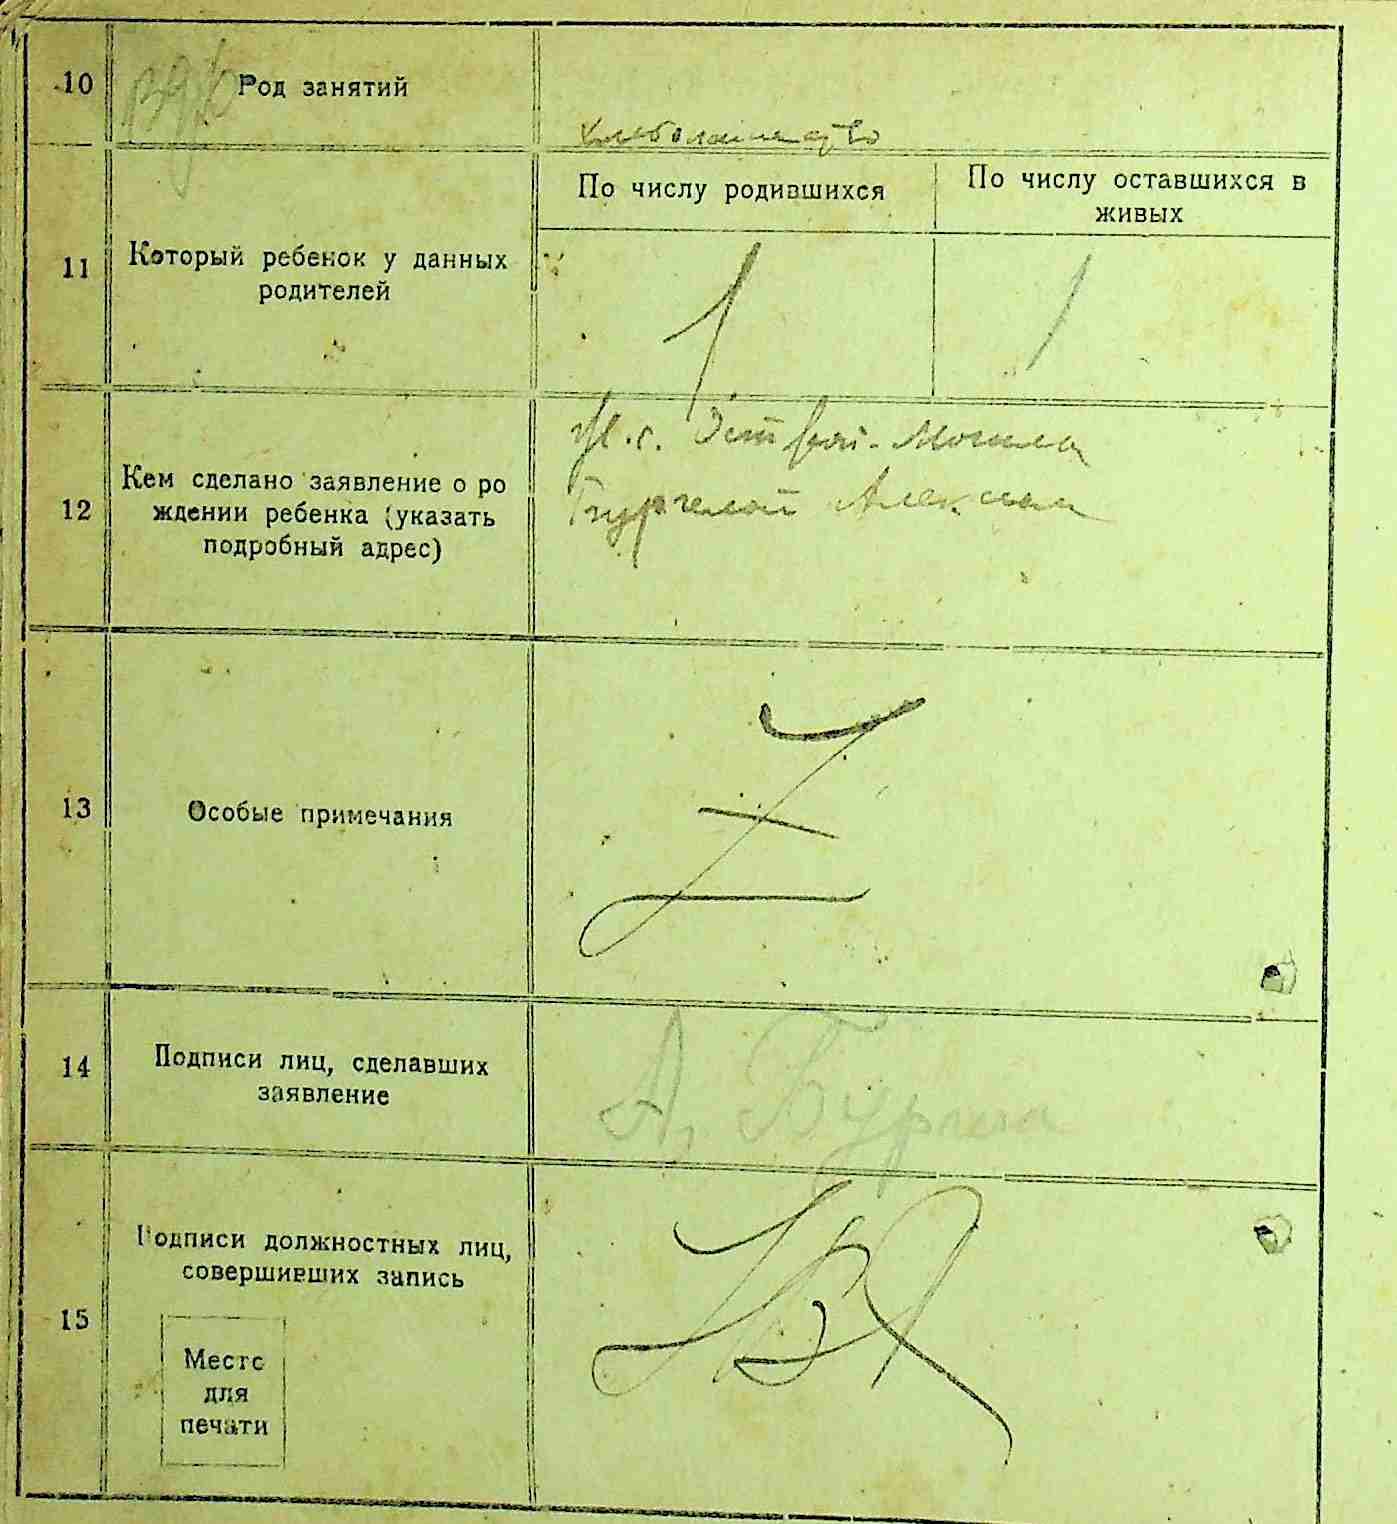 10
Род занятий
хлебопашество
11
Который ребенок у данных
родителей
По числу родившихся
По числу оставшихся в
живых
1
1
12
Кем сделано заявление о ро
ждении ребенка (указать
подробный адрес)
Могила
13
Особые примечания
14
Подписи лиц, сделавших
заявление
А.
15
Подписи должностных лиц,
совершивших запись
Место
для
печати